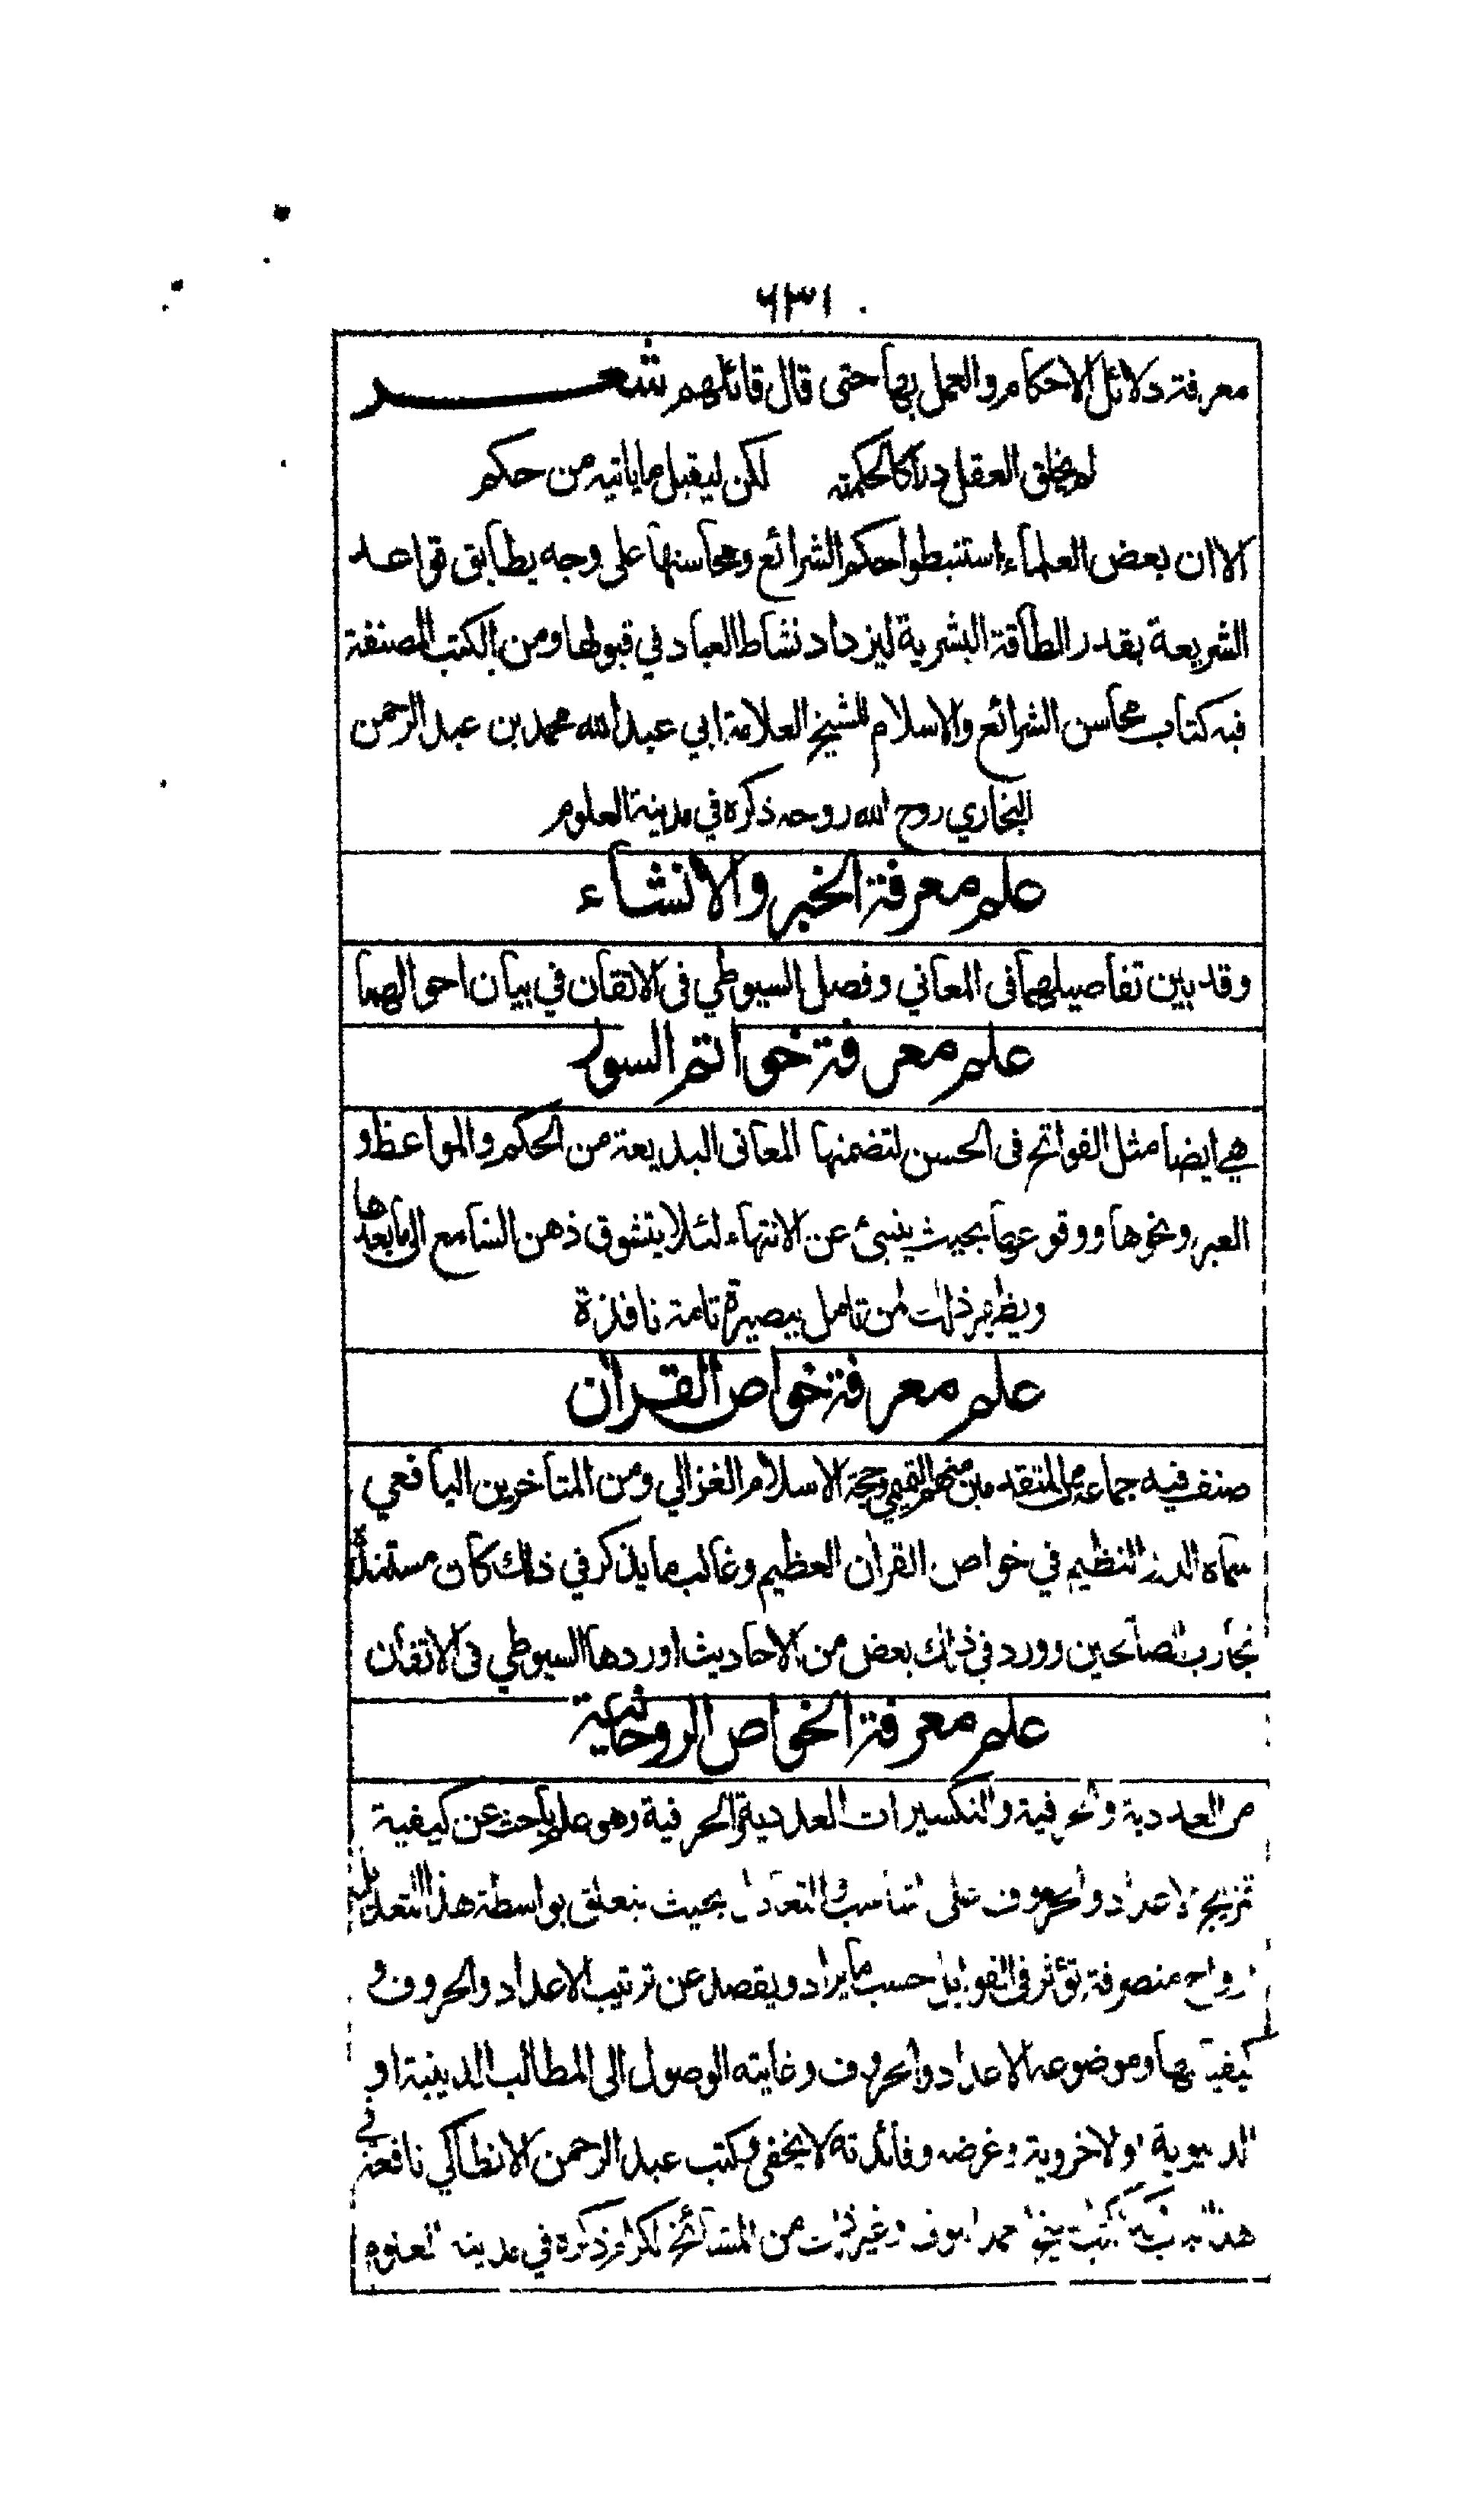 ٦٣١
معرفة دلائل الاحكام والعمل بها حتى قال قائلهم شعر
لم يخلق العقل دراكا لحكمته لكن ليقبل ما ياتيه من حكم
الا ان بعض العلماء استنبطوا حكم الشرائع ومحاسنها على وجه يطابق قواعد
الشريعة بقدر الطاقة البشرية ليزداد نشاط العباد في قبولها ومن الكتب المصنفة
فيه كتاب محاسن الشرائع والاسلام للشيخ العلامة ابي عبد الله محمد بن عبد الرحمن
البخاري روح الله روحه ذكره في مدينة العلوم
علم معرفة الخبر والانشاء
وقد بين تفاصيلهما فى المعاني وفصل السيوطي فى الاتقان في بيان احوالهما
علم معرفة خواتم السور
هي ايضا مثل الفواتح فى الحسن لتضمنها المعانى البديعة من الحكم والمواعظ و
العبر ونحوها ووقوعها بحيث ينبئ عن الانتهاء لئلا يتشوق ذهن السامع الى ما بعدها
ويظهر ذلك لمن تامل ببصيرة تامة نافذة
علم معرفة خواص القران
صنف فيه جماعة من المتقدمين منهم التميمي وحجة الاسلام الغزالي ومن المتاخرين اليافعي
سماه الدر النظيم في خواص القران العظيم وغالب ما يذكر في ذلك كان مستنده
تجارب الصالحين وورد في ذلك بعض من الاحاديث اوردها السيوطي فى الاتقان
علم معرفة الخواص الروحانية
من العددية والحرفية والتكسيرات العددية والحرفية وهو علم باحث عن كيفية
تمزيج الاعداد والحروف على التناسب والتعادل بحيث يتعلق بواسطة هذا التعديل
ارواح متصرفة تؤثر فى القوابل حسب ما يراد ويقصد عن ترتيب الاعداد والحروف و
كيفيتها وموضوعه الاعداد والحروف وغايته الوصول الى المطالب الدينية او
الدنيوية او الاخروية وغرضه وفائدته لا يخفى وكتب عبد الرحمن الانطاكي نافعة في
هذا الباب وكذا كتب الشيخ احمد البوني وغير ذلك من المشائخ الكرام ذكره في مدينة العلوم